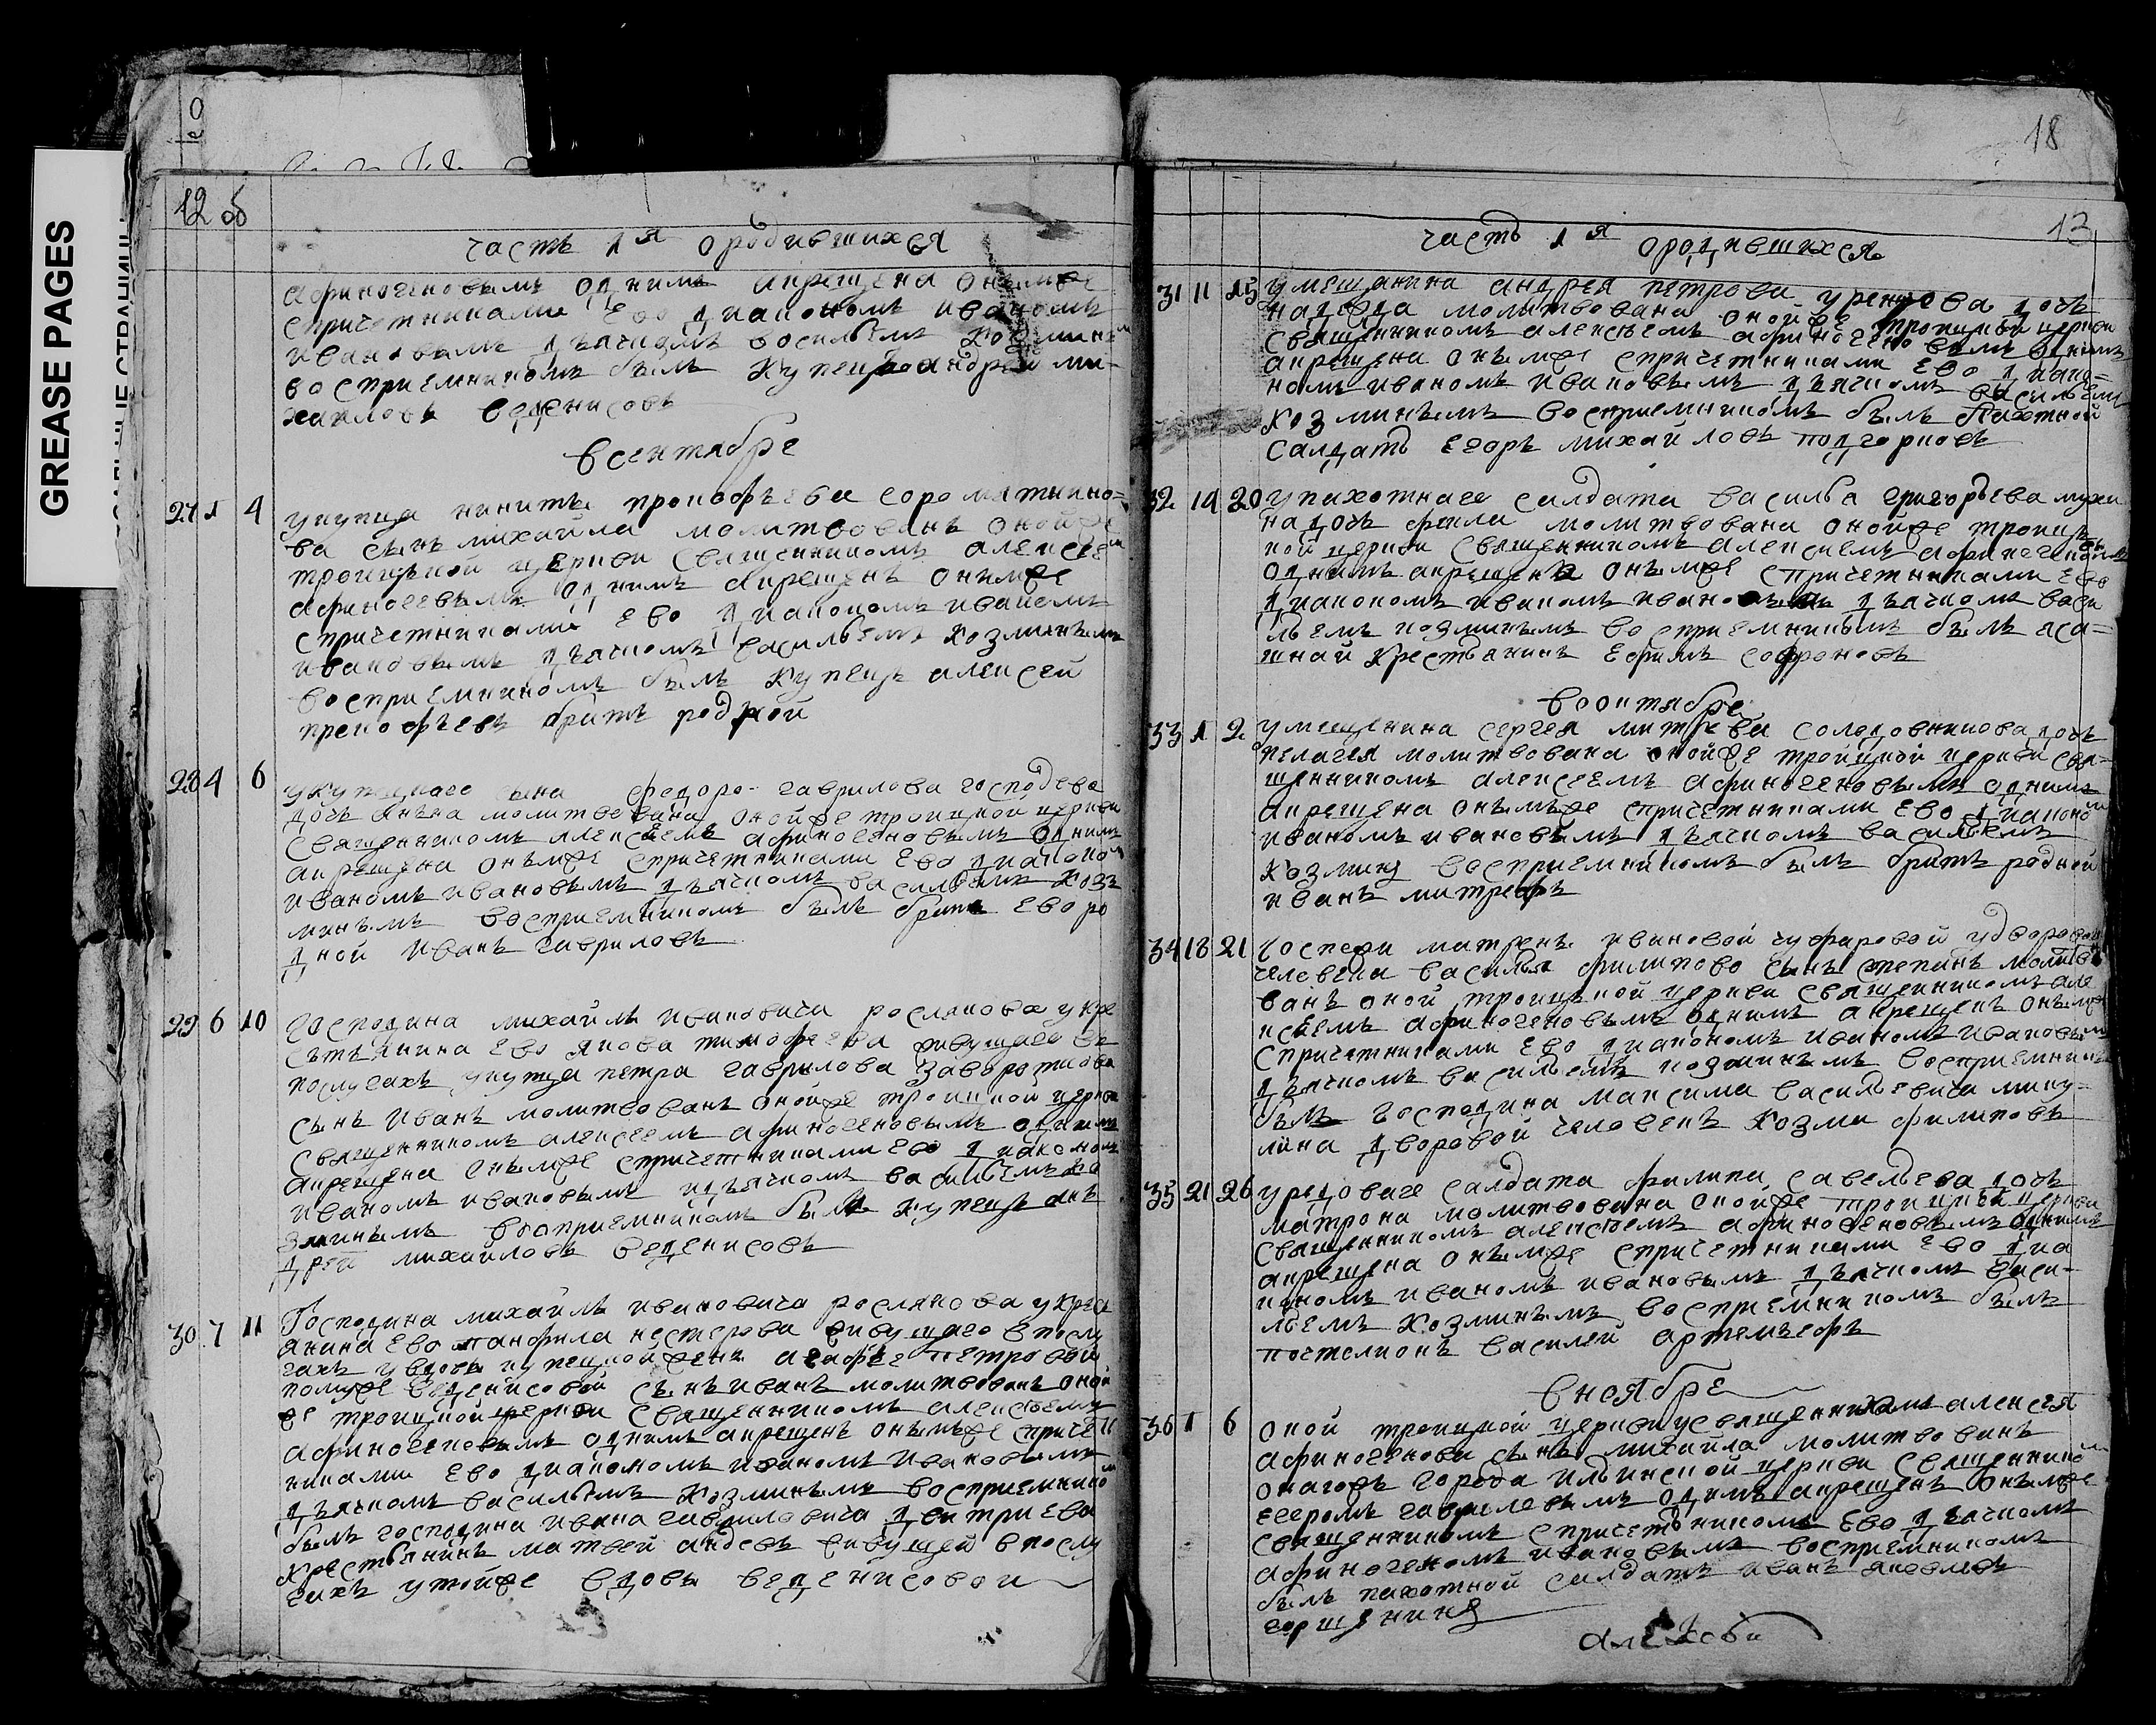 GREASE PAGES
12 об
часть 1я ородившихся
афиногеновымъ однимъ акрещена онымже
спричетниками ево диакономъ иваномъ
ивановымъ дьячкомъ васильемъ козминым
восприемникомъ былъ купецъ андрей ми-
хаиловъ веденисовъ
всентябре
27 1 4 укупца никиты прокофьева соромятнико=
ва сынъ михайла молитвованъ онойже
троицкой церкви священникомъ алексеем
афиногевымъ однимъ акрещенъ онымже
спричетниками ево диакономъ иваномъ
ивановымъ дьячкомъ васильемъ козминымъ
восприемникомъ былъ купецъ алексей
прокофьевъ братъ родной
28 4 6 укупецкаго сына федора гаврилова господева
дочь анна молитвована онойже троицкой церкви
священникомъ алексеемъ афиногеновымъ однимъ
акрещена онымже спричетниками ево диаконом
иваномъ ивановымъ дьячкомъ васильемъ коз
минымъ восприемникомъ былъ братъ ево ро
дной иванъ гавриловъ
29 6 10 господина михайлы ивановича рослякова укре
стьянина ево якова тимофеева живущаго въ
послугахъ укупца петра гаврилова завороткова
сынъ иванъ молитвованъ онойже троицкой церкви
священникомъ алексеемъ афиногеновымъ однимъ
акрещена онымже спричетниками ево диакономъ
иваномъ ивановымъ идьячкомъ васильемъ ко
зминымъ восприемникомъ былъ купецъ анъ
дрей михайловъ веденисовъ
30 7 11 Господина михайлы ивановича рослякова укрес
янина ево панфила нестерова живущаго впослу
гахъ увдовы купецкой жены агафье петровой
помуже веденисовой сынъ иванъ молитвованъ оной
же троицкой церкви священникомъ алексеемъ
афиногеновымъ однимъ акрещенъ онымже приче
никами ево диакономъ иваномъ ивановымъ
дьячкомъ васильемъ козминымъ восприемнико
былъ господина ивана гавриловича дмитриева
крестьянинъ матвей живущей впослу
гахъ утойже вдовы веденисовой
18
13
часть 1я ородившихся
31 11 15 умещанина андрея петрова дочь
надежда молитвована онойже троицкой церкви
священникомъ алексеемъ афиногеновымъ однимъ
акрещена онымже спричетниками ево диако=
номъ иваномъ ивановымъ дьячкомъ васильемъ
козминымъ восприемникомъ былъ пахотной
салдатъ егоръ михайловъ подгорновъ
32 14 20 упахотнаго салдата василья григорьева мухи
на дочь фекла молитвована онойже троиц
кой церкви священникомъ алексеемъ афиногеновым
однимъ акрещена онымже спричетниками ево
диакономъ иваномъ ивановымъ дьячкомъ васи
льемъ козминымъ восприемникомъ былъ яса=
шнай крестьянинъ ефимъ софроновъ
воктябре
33 1 2 умещенина сергея митрева солодовникова дочь
пелагея молитвована онойже тройцкой церкви свя-
щенникомъ алексеемъ афиногеновымъ однимъ
акрещена онымъже спричетниками ево диаконом
иваномъ ивановымъ дьячкомъ васильемъ
козмину восприемникомъ былъ братъ родной
иванъ митрефъ
34 18 21 госпожи матрены ивановой чуфаровой удворового
человека василья филипово сынъ степанъ молитв
ванъ оной троицкой церкви священникомъ але
ксеемъ афиногеновымъ однимъ акрещенъ онымже
спричетниками ево диакономъ иваномъ ивановым
дьячкомъ васильемъ козминымъ восприемник
былъ господина максима васильевича мику-
лина дворовой человекъ козма филиповъ
35 21 26 уредоваго салдата филипа савельева дочь
матрона молитвована онойже троицкой церкви
священникомъ алексеемъ афиногеновымъ однимъ
акрещена онымже спричетниками ево диа
кономъ иваномъ ивановымъ дьячкомъ васи-
льемъ козминымъ восприемникомъ былъ
почтелионъ василей артемьефъ
вноябре
36 1 6 оной троицкой церкви усвященникомъ алексея
афиногенова сынъ михайла молитвованъ
онагожъ города ильинской церкви священником
егоромъ гавриловымъ однимъ акрещенъ онымже
священникомъ спричетникомъ ево дьячкомъ
афиногеномъ ивановымъ восприемникомъ
былъ пахотной салдатъ иванъ яковлевъ
горшенинъ